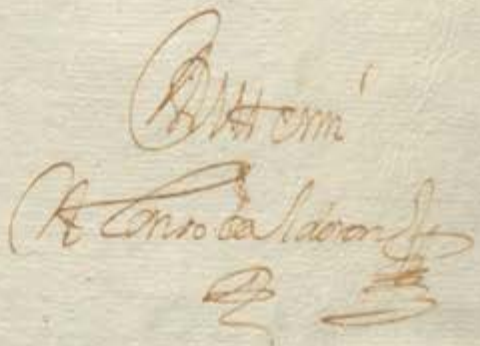 Antemi
Alonso Calderon